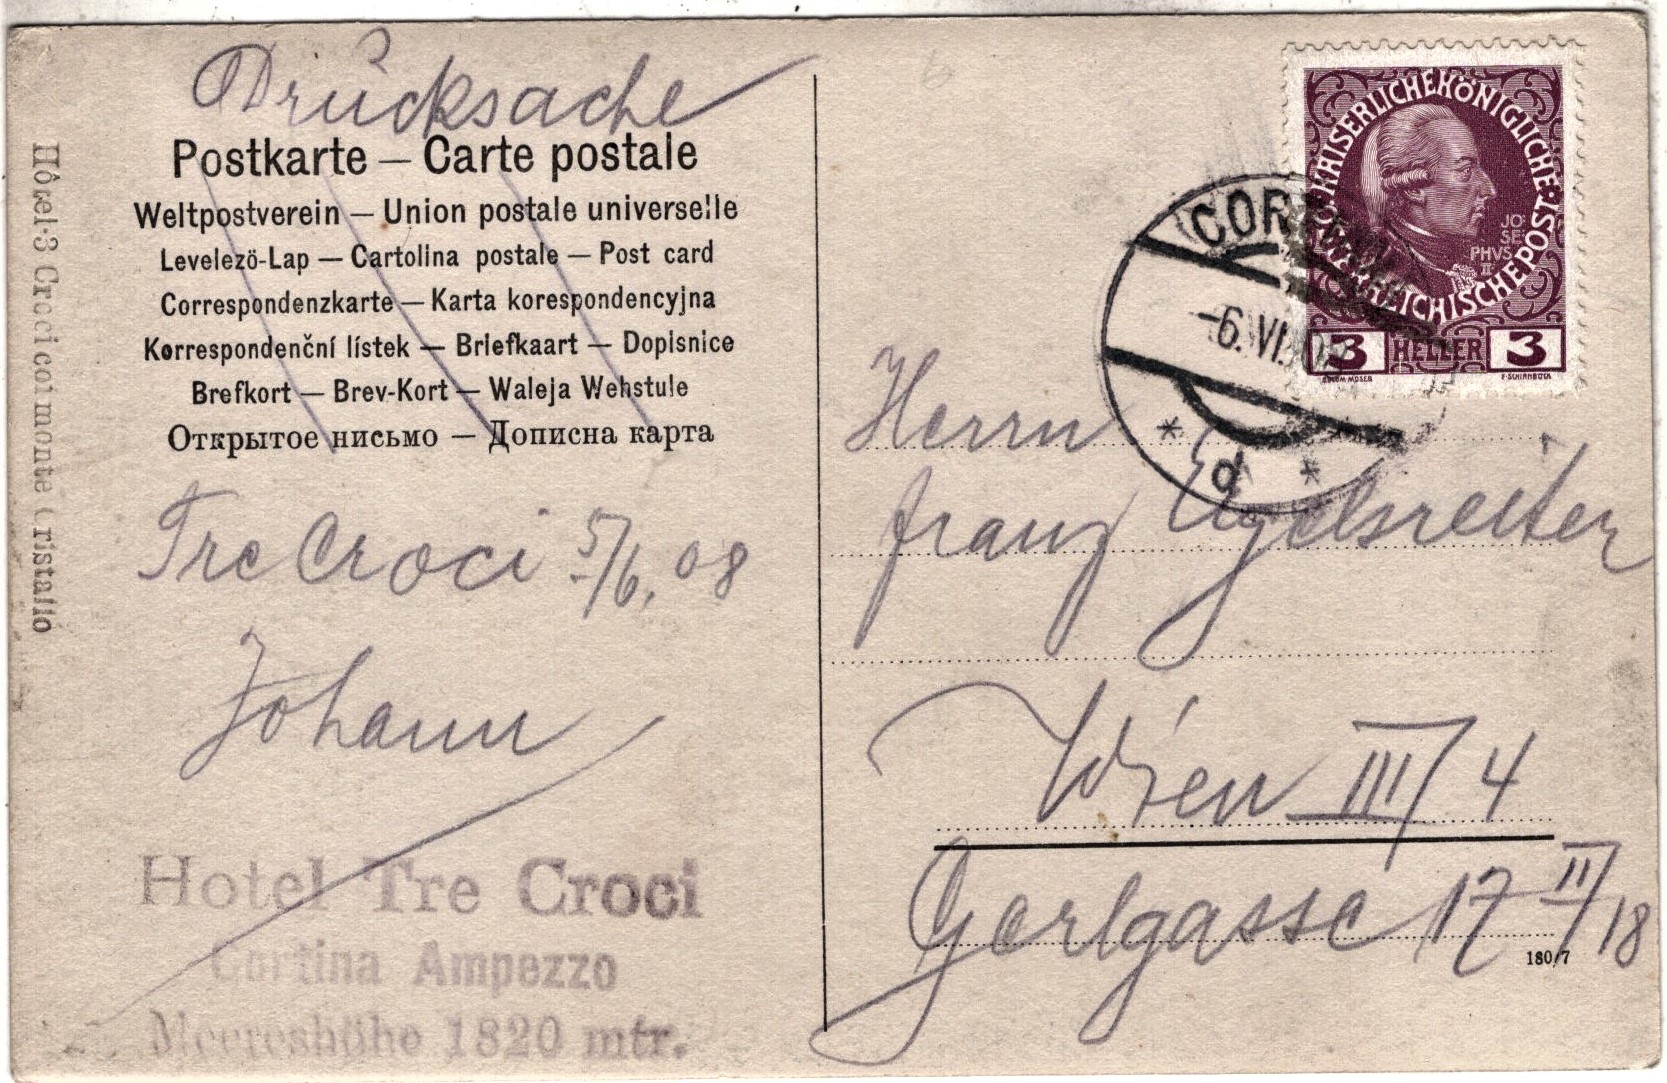 Drucksache
Postkarte — Carte postale
Weltpostverein — Union postale universelle
Levelezö-Lap — Cartolina postale — Post card
Correspondenzkarte — Karta korespondencyjna
Korrespondenční lístek — Briefkaart — Dopisnice
Brefkort — Brev-Kort — Waleja Wehstule
Открытое письмо — Дописна карта
Tre Croci 5/6. 08
Johann
Hotel Tre Croci
Cortina Ampezzo
Meereshöhe 1820 mtr.
Hôtel 3 Croci col monte Cristallo
KAISERLICHE KÖNIGLICHE
ÖSTERREICHISCHE POST
JO
SE
PHVS
II
3 HELLER 3
KOLOM. MOSER F. SCHIRNBÖCK
-6.VI.
d
Herrn
Franz Eigelsreiter
Wien III/4
Gerlgasse 17 II/18
180/7